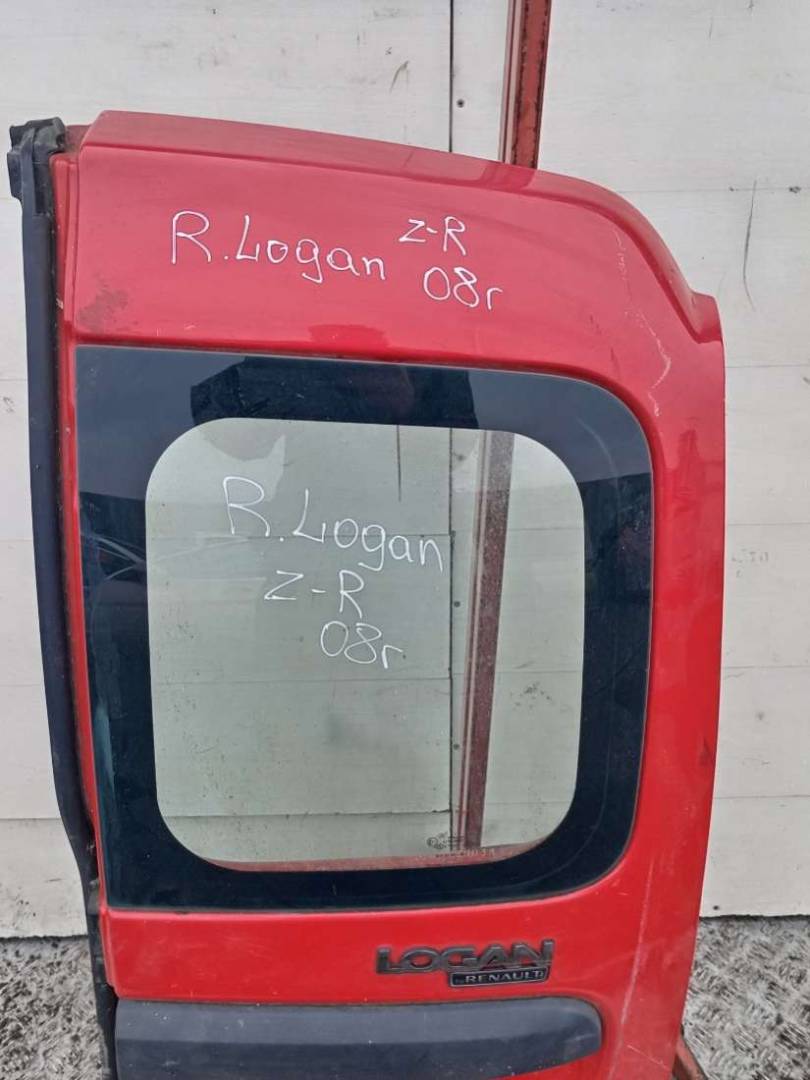 R.Logan z-R
08г
R.Logan
Z-R
08г
LOGAN
BY RENAULT